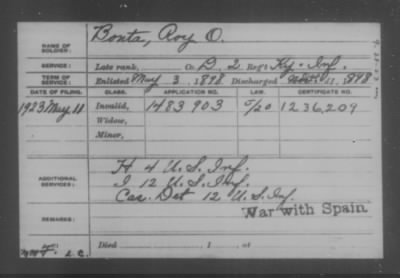 NAME OF SOLDIER: Bonta, Roy O.
SERVICE: Late rank, Co. D, 2 Reg't Ky. Inf.
TERM OF SERVICE: Enlisted May 3, 1898 Discharged 11, 1898
DATE OF FILING. CLASS. APPLICATION NO. LAW. CERTIFICATE NO.
1923 May 11 Invalid, 1483 903 5/20 1236,209
Widow,
Minor,
ADDITIONAL SERVICES: H 4 U.S. Inf.
I 12 U.S. Inf.
Cas. Det 12 U.S. Inf.
War with Spain.
REMARKS:
Died , 1 , at